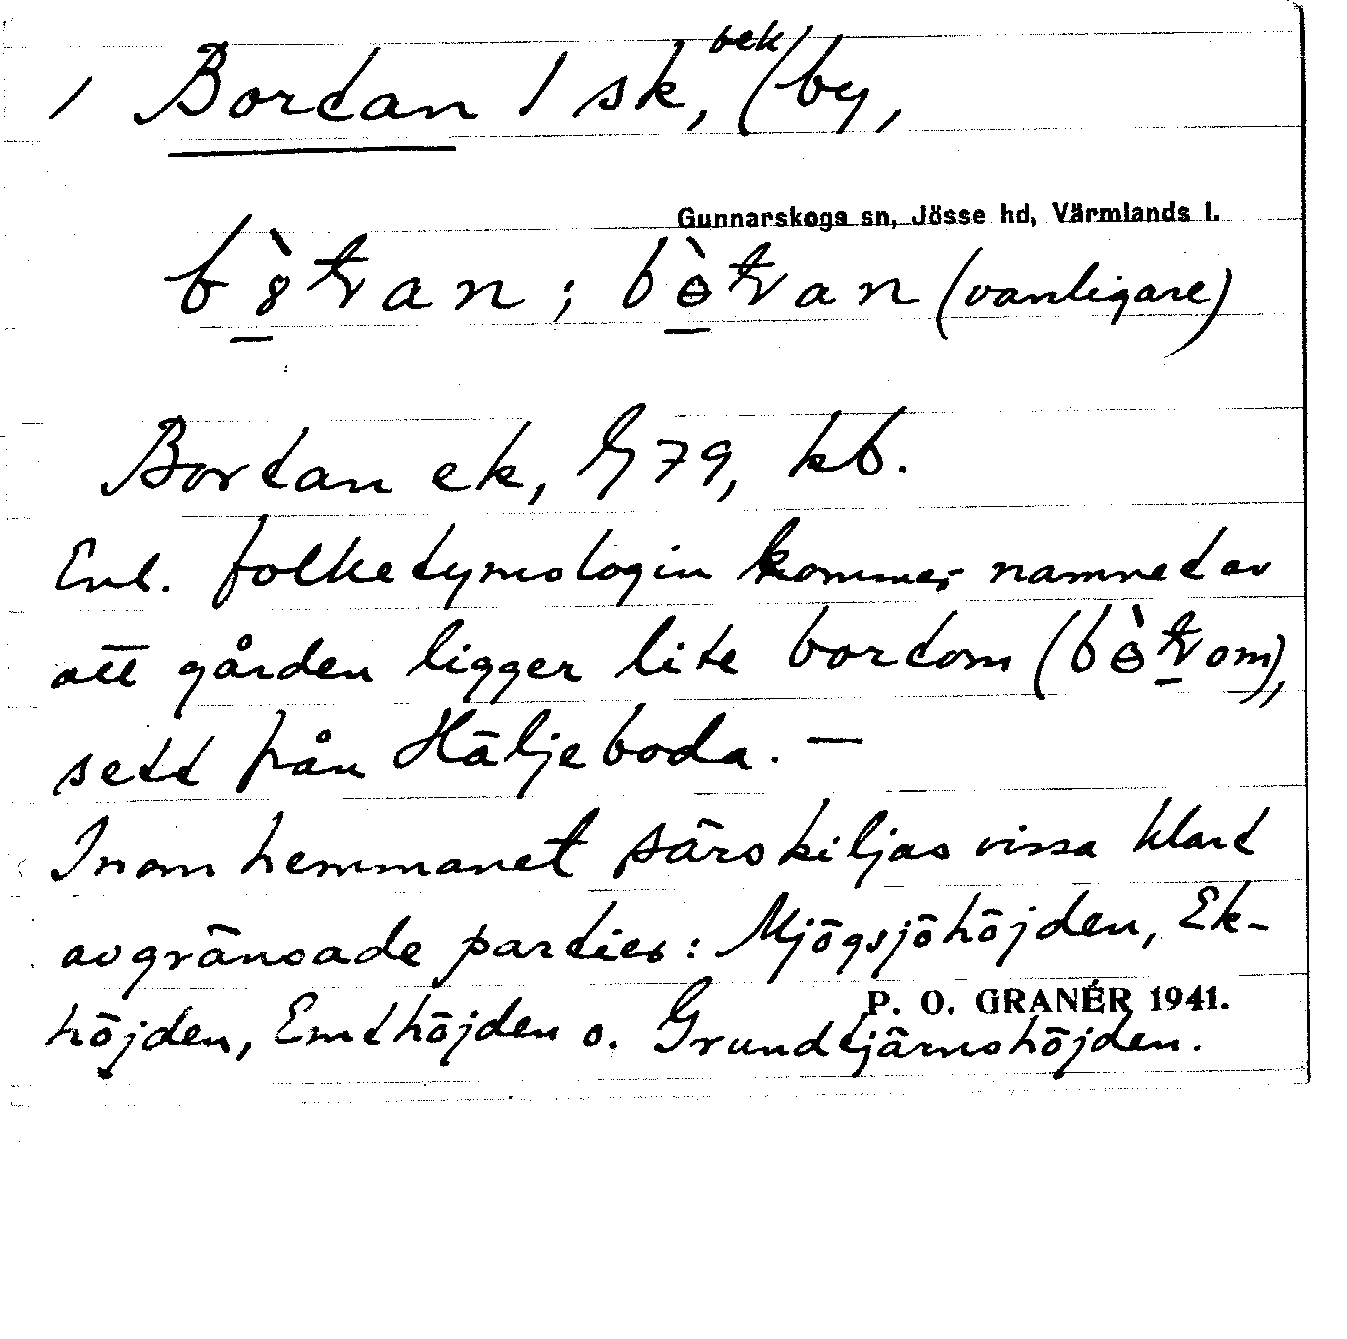 / Bortan 1 sk, bek (by,
Gunnarskogs sn, Jösse hd, Värmlands l.
bòtran; bòtran (vanligare)
Bortan ek, G 79, kb.
Enl. folketymologin kommer namnet av
att gården ligger lite bortom (bòtrom),
sett från Häljeboda. —
Inom hemmanet särskiljas vissa klart
avgränsade partier: Mjögsjöhöjden, Ek-
höjden, Emthöjden o. Grundtjärnshöjden.
P. O. GRANÉR 1941.